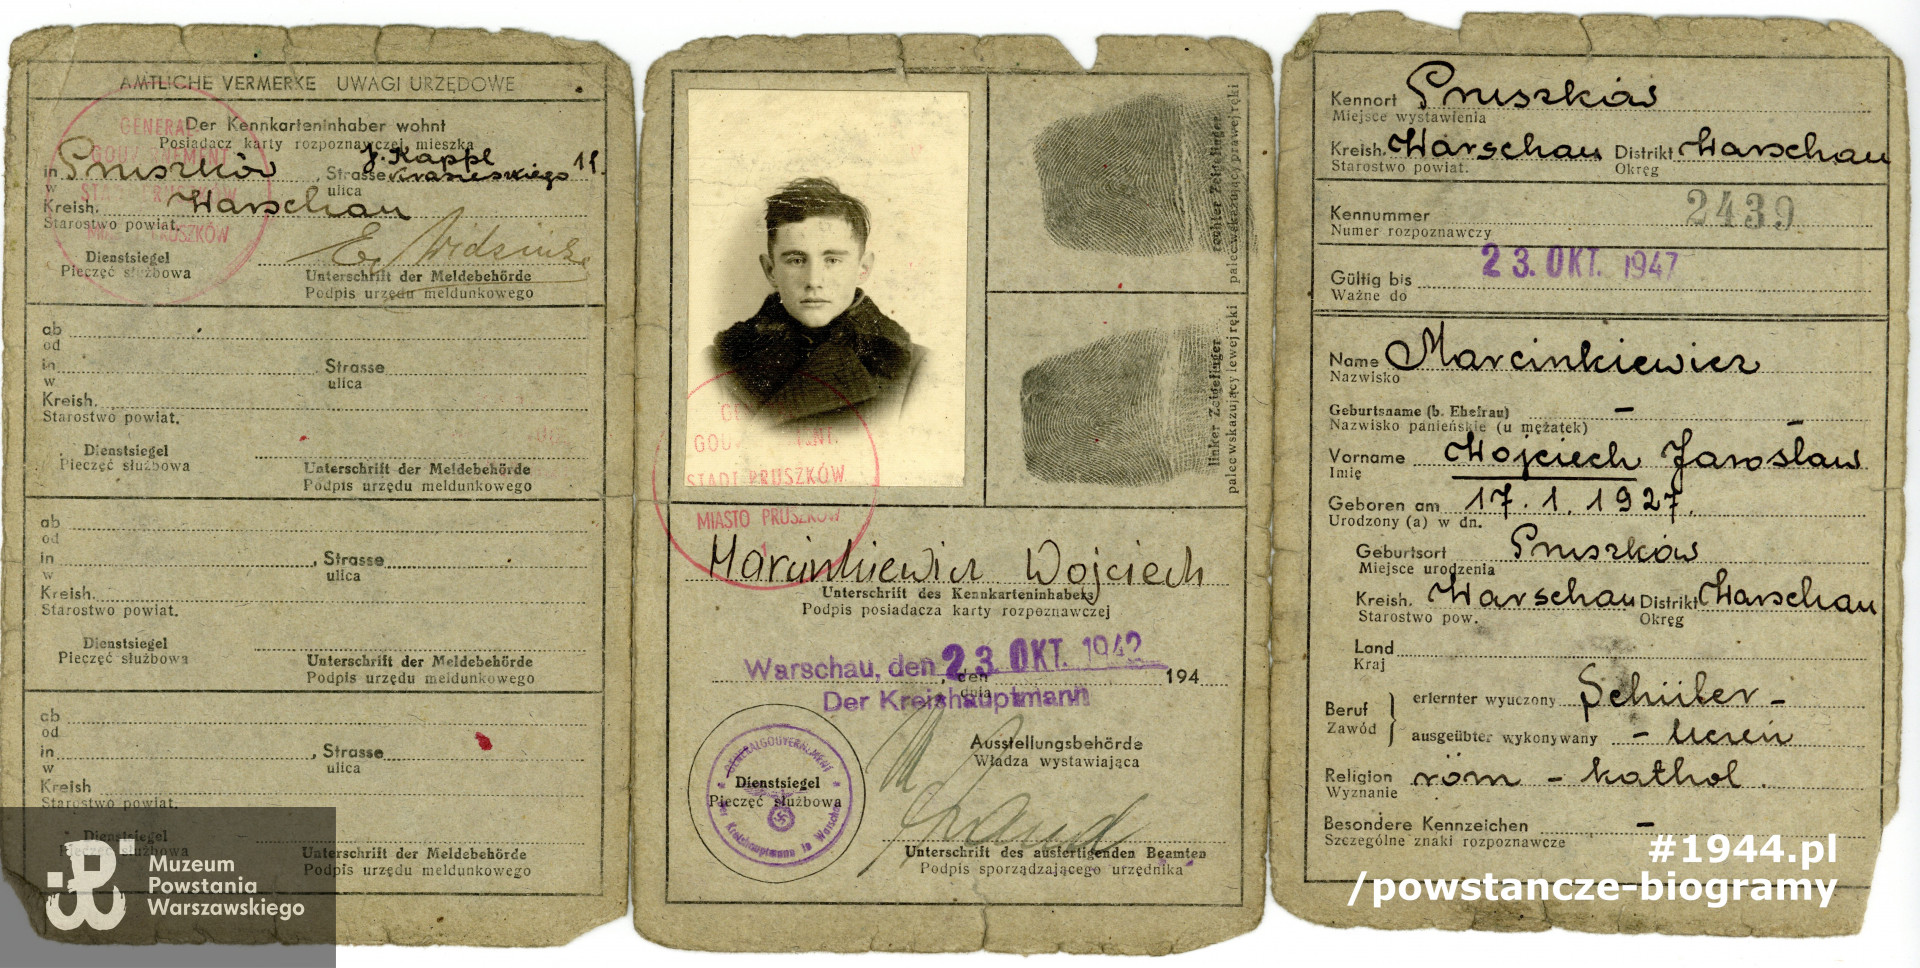 AMTLICHE VERMERKE UWAGI URZĘDOWE
Der Kennkarteninhaber wohnt
Posiadacz karty rozpoznawczej mieszka
in Pruszków, Strasse J. Kappl Kraszewskiego
w ulica
Kreish. Warschau
Starostwo powiat.
GENERAL
GOUVERNEMENT
STADT PRUSZKÓW
MIASTO PRUSZKÓW
Dienstsiegel
Pieczęć służbowa
Unterschrift der Meldebehörde
Podpis urzędu meldunkowego
ab
od
in , Strasse
w ulica
Kreish.
Starostwo powiat.
Dienstsiegel
Pieczęć służbowa
Unterschrift der Meldebehörde
Podpis urzędu meldunkowego
ab
od
in , Strasse
w ulica
Kreish.
Starostwo powiat.
Dienstsiegel
Pieczęć służbowa
Unterschrift der Meldebehörde
Podpis urzędu meldunkowego
ab
od
in , Strasse
w ulica
Kreish
Starostwo powiat.
Dienstsiegel
Pieczęć służbowa
Unterschrift der Meldebehörde
Podpis urzędu meldunkowego
Muzeum
Powstania
Warszawskiego
rechter Zeigefinger
palec wskazujący prawej ręki
linker Zeigefinger
palec wskazujący lewej ręki
GENERAL
GOUVERNEMENT.
STADT PRUSZKÓW
MIASTO PRUSZKÓW
1
Marcinkiewicz Wojciech
Unterschrift des Kennkarteninhabers
Podpis posiadacza karty rozpoznawczej
Warschau, den 23. OKT. 1942
, den 194
dnia
Der Kreishauptmann
Ausstellungsbehörde
Władza wystawiająca
GENERALGOUVERNEMENT
Der Kreishauptmann in Warschau
Dienstsiegel
Pieczęć służbowa
Unterschrift des ausfertigenden Beamten
Podpis sporządzającego urzędnika
Kennort Pruszków
Miejsce wystawienia
Kreish. Warschau Distrikt Warschau
Starostwo powiat. Okręg
Kennummer 2439
Numer rozpoznawczy
Gültig bis 23. OKT. 1947
Ważne do
Name Marcinkiewicz
Nazwisko
Geburtsname (b. Ehefrau) –
Nazwisko panieńskie (u mężatek)
Vorname Wojciech Jarosław
Imię
Geboren am 17.1.1927.
Urodzony (a) w dn.
Geburtsort Pruszków
Miejsce urodzenia
Kreish. Warschau Distrikt Warschau
Starostwo pow. Okręg
Land
Kraj
Beruf erlernter wyuczony Schüler –
Zawód ausgeübter wykonywany – uczeń
Religion röm – kathol.
Wyznanie
Besondere Kennzeichen –
Szczególne znaki rozpoznawcze
#1944.pl
/powstancze-biogramy